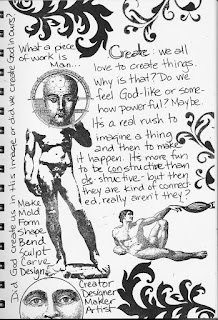 What a piece
of work is
Man...
Create: we all
love to create things.
Why is that? Do we
feel God-like or some-
how powerful? Maybe.
It's a real rush to
imagine a thing
and then to make
it happen. It's more fun
to be constructive than
de structive - but then
they are kind of connect-
ed, really aren't they?
Make
Mold
Form
Shape
Bend
Sculpt
Carve
Design
Creator
Designer
Maker
Artist
Did God create us in his image or did we create God in ours?